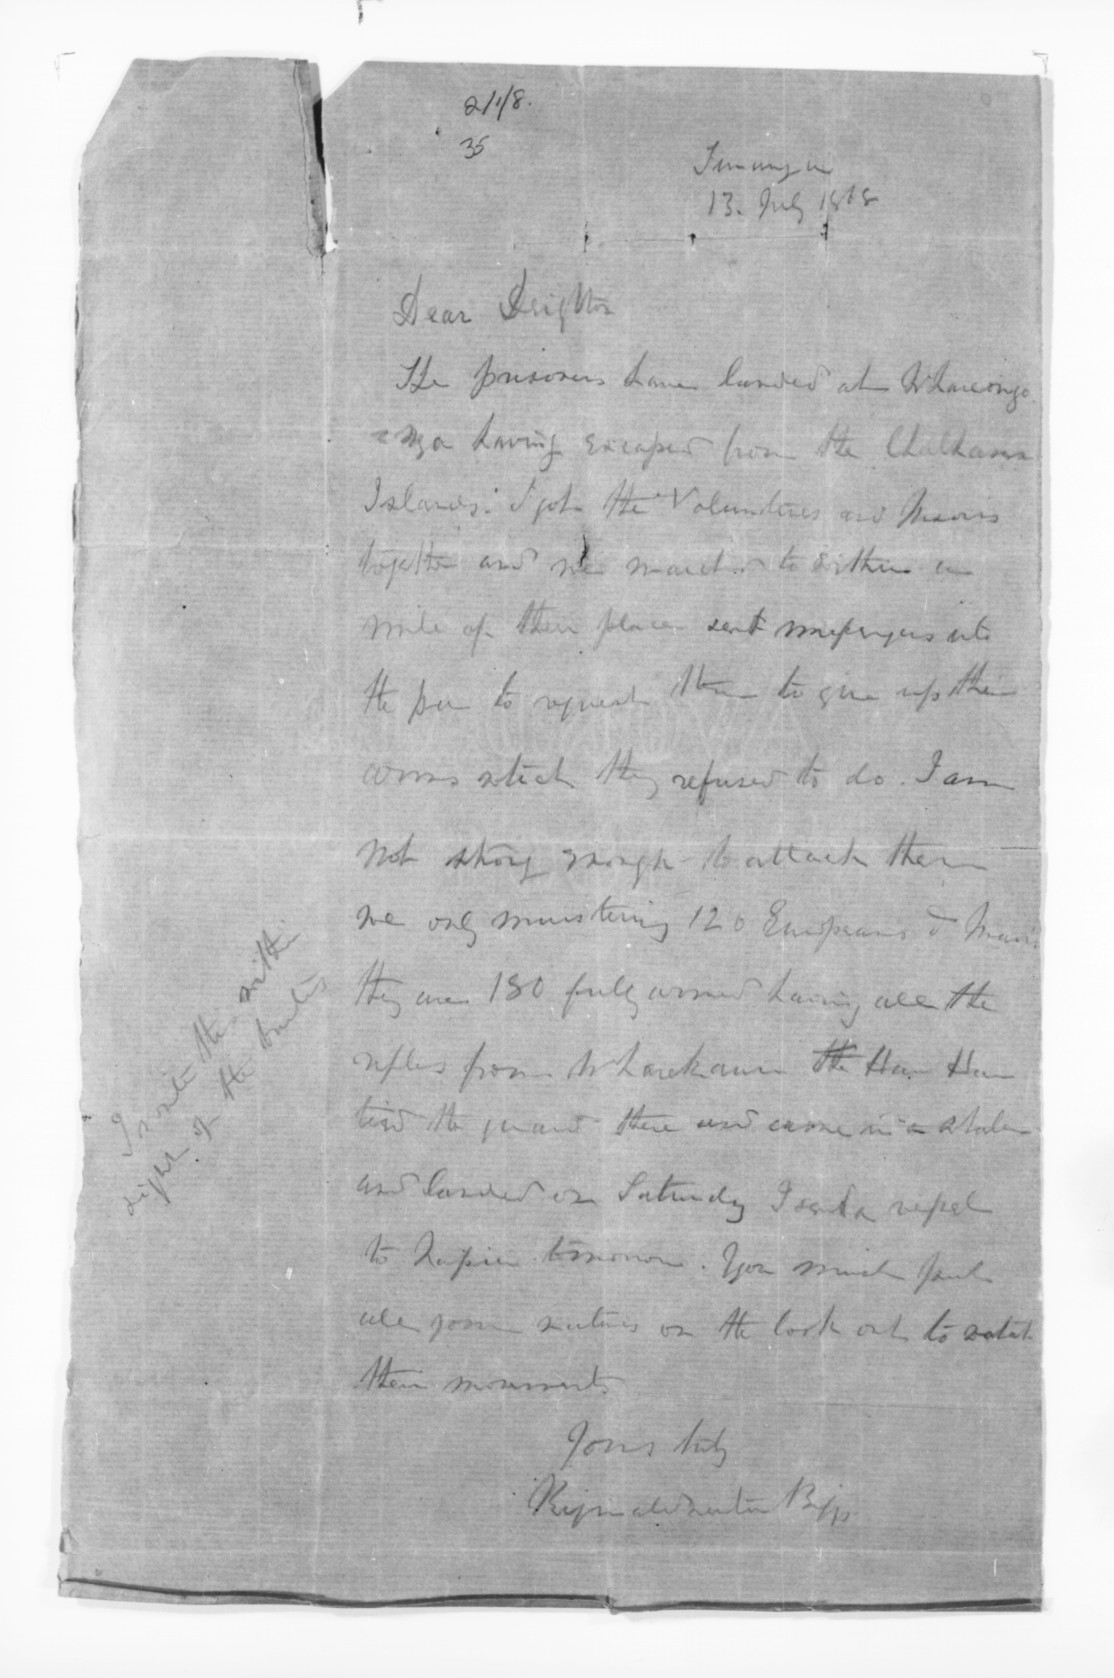 2/1/8.
35
Turanganui
13. July 1868
Dear Deighton
The prisoners have landed at Whareonga
=nga having escaped from the Chathams
Islands. I got the Volunteers and Maoris
together and we marched to within a
mile of their place sent messengers into
the paa to request them to give up their
arms which they refused to do. I am
not strong enough to attack them
we only mustering 120 Europeans & Maoris
they are 180 fully armed having all the
rifles from Wharekauri the Hau Hau
tied the guard there and came in a
and landed on Saturday I send a vessel
to Napier tomorrow. You must put
all your natives on the look out to watch
their movements
Yours truly
Reginald Newton Biggs
I write this within
sight of the